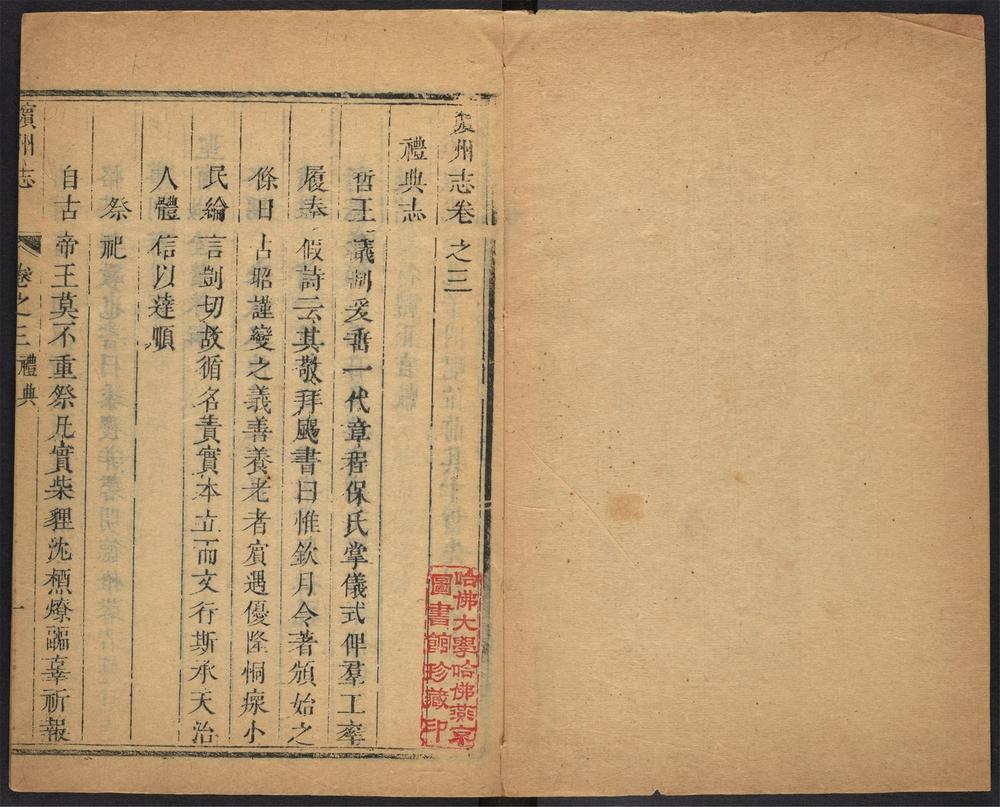 濱州志卷之三
禮典志
哲王議制爰垂一代章程保氏掌儀式俾羣工率
履奉假詩云其敬拜颺書曰惟欽月令著頒始之
條日占昭謹變之義善養老者賓遇優隆恫瘝小
民綸言剴切故循名責實本立而文行斯承天治
人體信以達順
祭祀
自古帝王莫不重祭凡實柴貍沈槱燎疈辜祈報
濱州志
卷之三
禮典
一
哈佛大學哈佛燕京
圖書館珍藏印